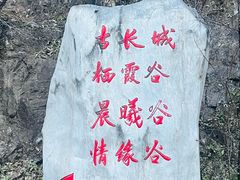 古长城
栖霞谷
晨曦谷
情缘谷